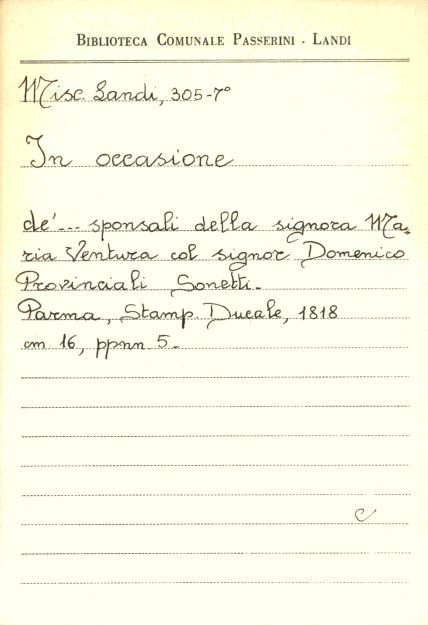 BIBLIOTECA COMUNALE PASSERINI - LANDI
Misc. Landi, 305-7°
In occasione
de'... sponsali della signora Ma-
ria Ventura col signor Domenico
Provinciali Sonetti.
Parma, Stamp. Ducale, 1818
cm 16, ppnn 5.
C